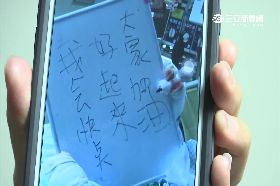 三立新聞網
我会快点
好起來
大家加油